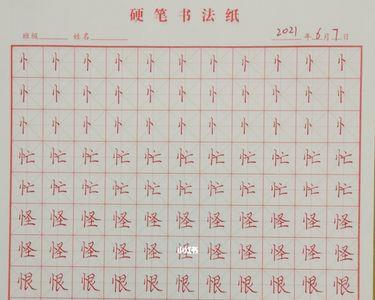 硬笔书法纸
班级 姓名 2021年6月7日
忄忄忄忄忄忄忄忄忄忄忄
忄忄忄忄忄忄忄忄忄忄忄
忄忄忄忄忄忄忄忄忄忄忄
忙忙忙忙忙忙忙忙忙忙忙
忙忙忙忙忙忙忙忙忙忙忙
怪怪怪怪怪怪怪怪怪怪怪
怪怪怪怪怪怪怪怪怪怪怪
小红书
恨恨恨恨恨恨恨恨恨恨恨